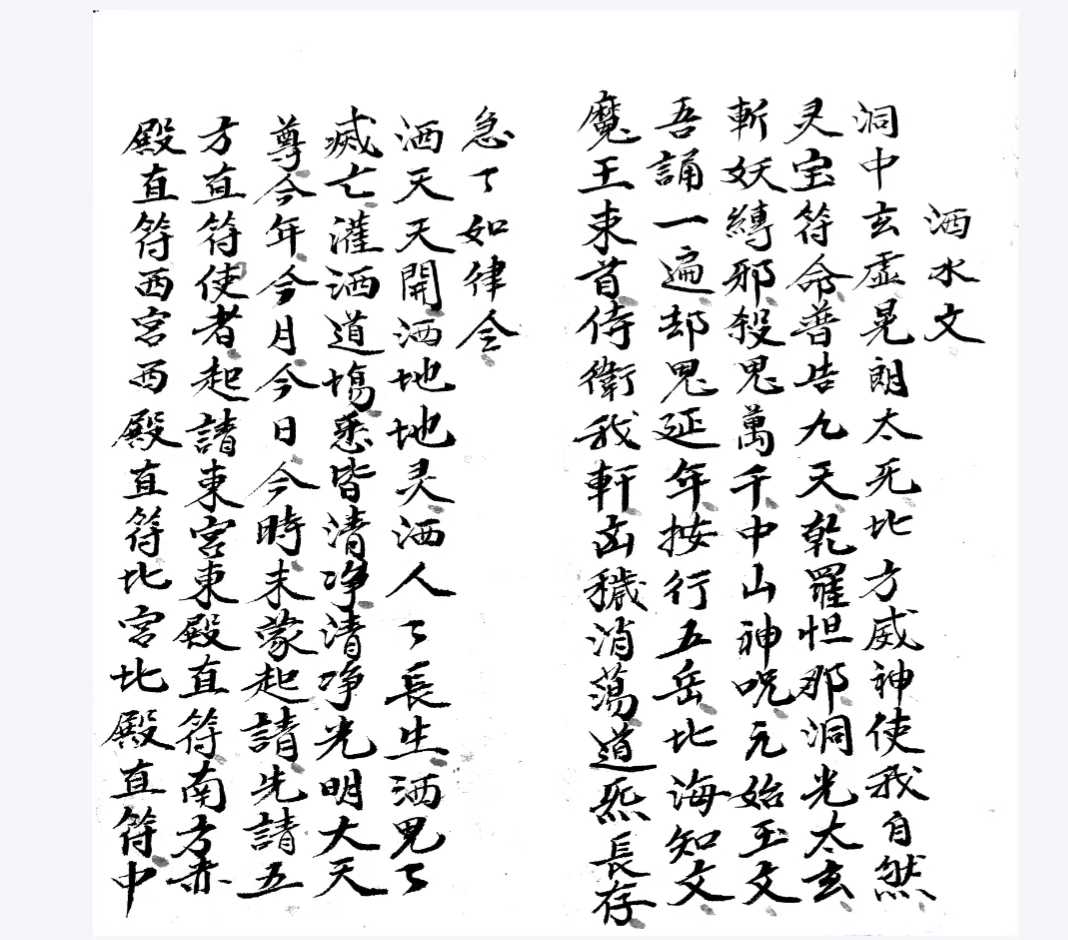 洒水文
洞中玄虚晃朗太旡北方威神使我自然
灵宝符命普告九天乾羅怛那洞光太玄
斬妖縛邪殺鬼萬千中山神呪元始玉文
吾誦一遍却鬼延年按行五岳北海知文
魔王束首侍衛我軒凶穢消蕩道炁長存
急了如律令
洒天天開洒地地灵洒人了長生洒鬼了
滅亡灌洒道場悉皆清净清净光明大天
尊今年今月今日今時末蒙起請先請五
方直符使者起請東宮東殿直符南方赤
殿直符西宮西殿直符北宮北殿直符中